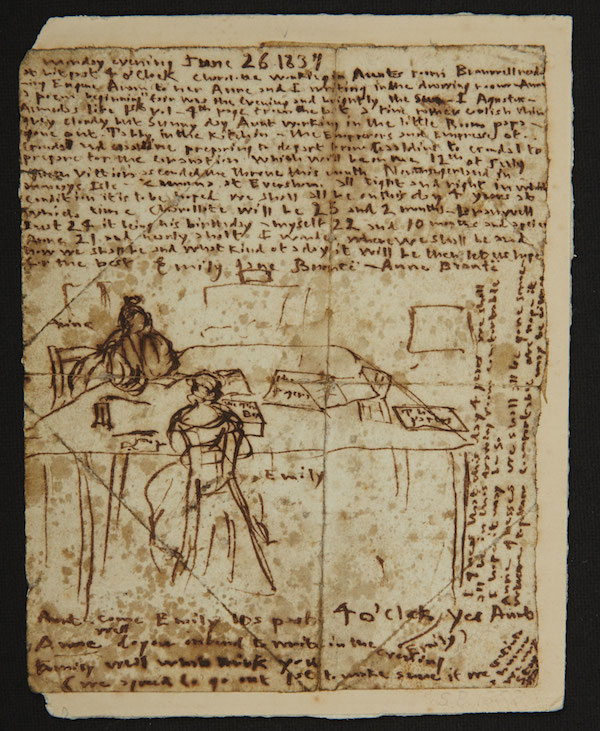 Monday evening June 26 1837
a bit past 4 o'Clock Charlotte working in Aunts room Branwell read
ing Eugene Aram to her Anne and I writing in the drawing room Anne
a poem beginning fair was the evening and brightly the Sun — I Agustus
Almedas life 1st vol — 4th page from the last a fine rather coolish thin
grey cloudy but Sunny day Aunt working in the little Room papa
gone out. Tabby in the Kitchin — the Emperors and Empresses of
Gondal and Gaaldine preparing to depart from Gaaldine to Gondal to
prepare for the coronation which will be on the 12th of July
Vittoria ascended the throne this month Northangerland in
Monceys Isle — Zamorna at Eversham. all tight and right in which
condition it is to be hoped we shall all be on this day 4 years at
which time Charllote will be 25 and 2 months — Branwell
just 24 it being his birthday — myself 22 and 10 months and a peice
Anne 21 and nearly a half I wonder where we shall be and
how we shall be and what kind of a day it will be then let us hope
for the best Emily Jane Brontë — Anne Brontë
Anne
The
papers
Emily
I guess that this day 4 years we shall
all be in this drawing room comfortable
I hope it may be so
Anne guesses we shall all be gone some
where together comfortable We hope it
may be
Aunt come Emily Its past 4 o'Clock yes Aunt
Anne well do you intend to write in the (Emily)
evening well what think you
(we agreed to go out 1st to make sure if we